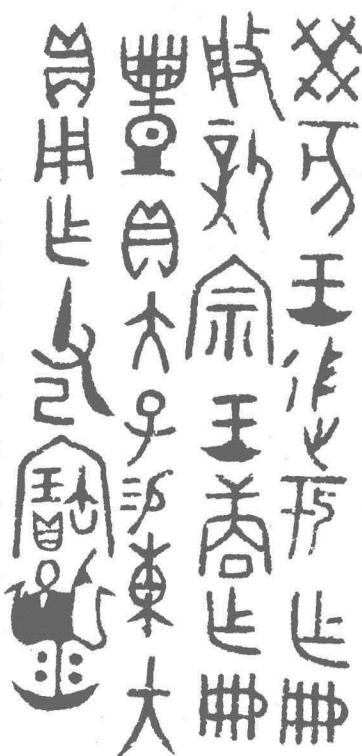 癸亥王于作冊
般新宗王商作冊
豐貝大子易東大
貝用作父己寶